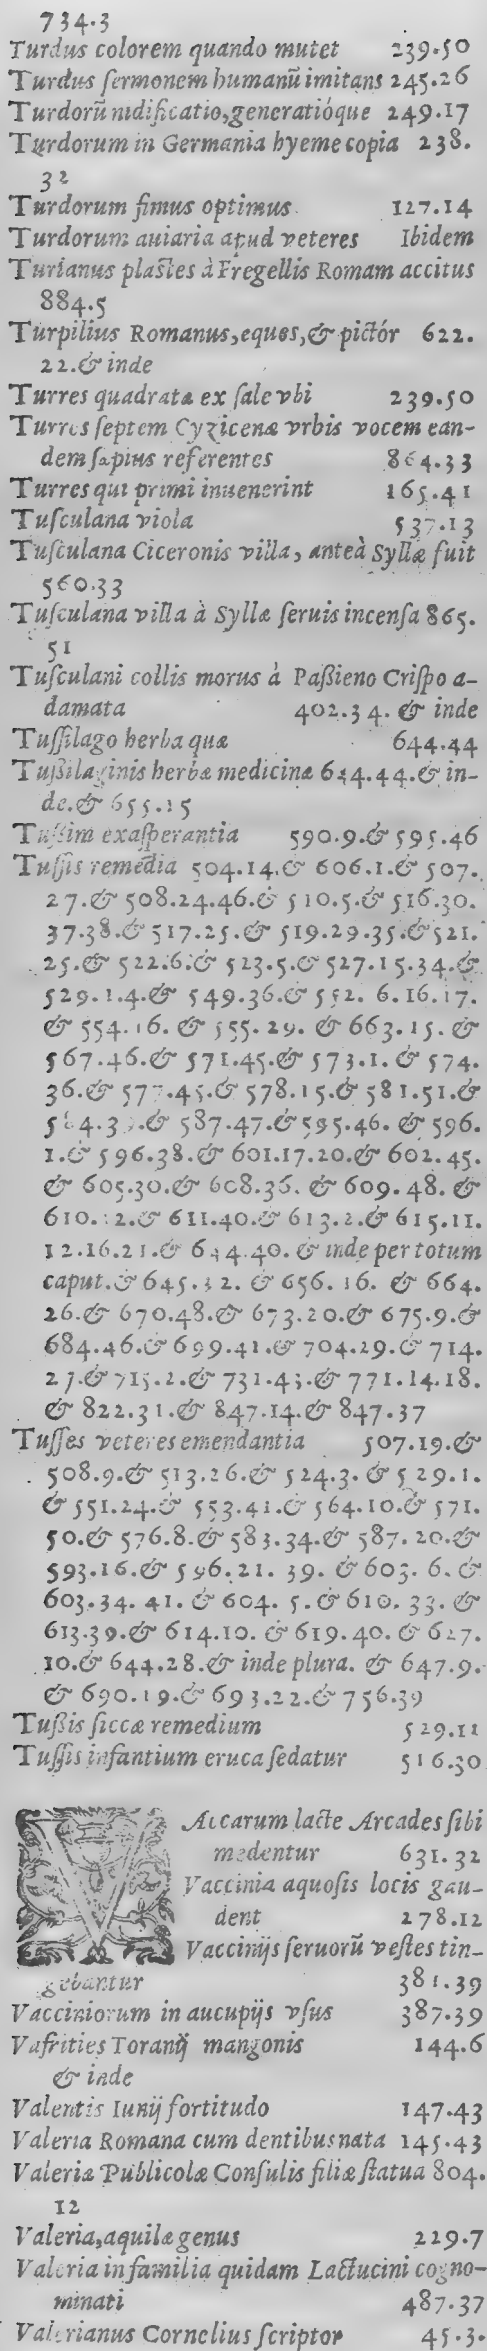 734.3
Turdus colorem quando mutet 239.50
Turdus sermonem humanũ imitans 245.26
Turdorũ nidificatio, generatióque 249.17
Turdorum in Germania hyeme copia 238.
32
Turdorum fimus optimus 127.14
Turdorum auiaria apud veteres Ibidem
Turianus plastes à Fregellis Romam accitus
884.5
Turpilius Romanus, eques, & pictór 622.
22.& inde
Turres quadratæ ex sale vbi 239.50
Turres septem Cyzicenæ vrbis vocem ean-
dem sæpius referentes 864.33
Turres qui primi inuenerint 165.41
Tusculana viola 537.13
Tusculana Ciceronis villa, anteà Syllæ fuit
560.33
Tusculana villa à Syllæ seruis incensa 865.
51
Tusculani collis morus à Paßieno Crispo a-
damata 402.34. & inde
Tussilago herba quæ 644.44
Tußilaginis herbæ medicinæ 644.44.& in-
de.& 655.15
Tussim exasperantia 590.9.& 595.46
Tussis remedia 504.14.& 606.1.& 507.
27.& 508.24.46.& 510.5.& 516.30.
37.38.& 517.25.& 519.29.35.& 521.
25.& 522.6.& 523.5.& 527.15.34.&
529.1.4.& 549.36.& 552. 6.16.17.
& 554.16. & 555.29. & 663.15. &
567.46.& 571.45.& 573.1. & 574.
36.& 577.45.& 578.15.& 581.51.&
& 587.47.& 595.46. & 596.
1.& 596.38.& 601.17.20.& 602.45.
& 605.30.& 608.36. & 609.48. &
610. & 611.40.& 613.2.& 615.11.
12.16.21.& 644.40. & inde per totum
caput.& & 656.16. & 664.
26.& 670.48.& 673.20.& 675.9.&
684.46.& 699.41.& 704.29.& 714.
27.& 715.2.& 731.43.& 771.14.18.
& 822.31.& 847.14.& 847.37
Tusses veteres emendantia 507.19.&
508.9.& 513.26.& 524.3. & 529.1.
& 551.24.& 553.41.& 564.10.& 571.
50.& 576.8.& 583.34.& 587.20.&
593.16.& 596.21. 39. & 603. 6. &
603.34. 41. & 604. 5.& 610. 33. &
613.39.& 614.10. & 619.40. & 627.
10.& 644.28.& inde plura. & 647.9.
& 690.19.& 693.22.& 756.39
Tußis siccæ remedium 529.11
Tussis infantium eruca sedatur 516.30
VAccarum lacte Arcades sibi
medentur 631.32
Vaccinia aquosis locis gau-
dent 278.12
Vaccinijs seruorũ vestes tin-
gebantur 381.39
Vacciniorum in aucupijs vsus 387.39
Vafrities Toranij mangonis 144.6
& inde
Valentis Iunij fortitudo 147.43
Valeria Romana cum dentibus nata 145.43
Valeriæ Publicolæ Consulis filiæ statua 804.
12
Valeria, aquilæ genus 229.7
Valeria in familia quidam Lactucini cogno-
minati 487.37
Valerianus Cornelius scriptor 45.3.